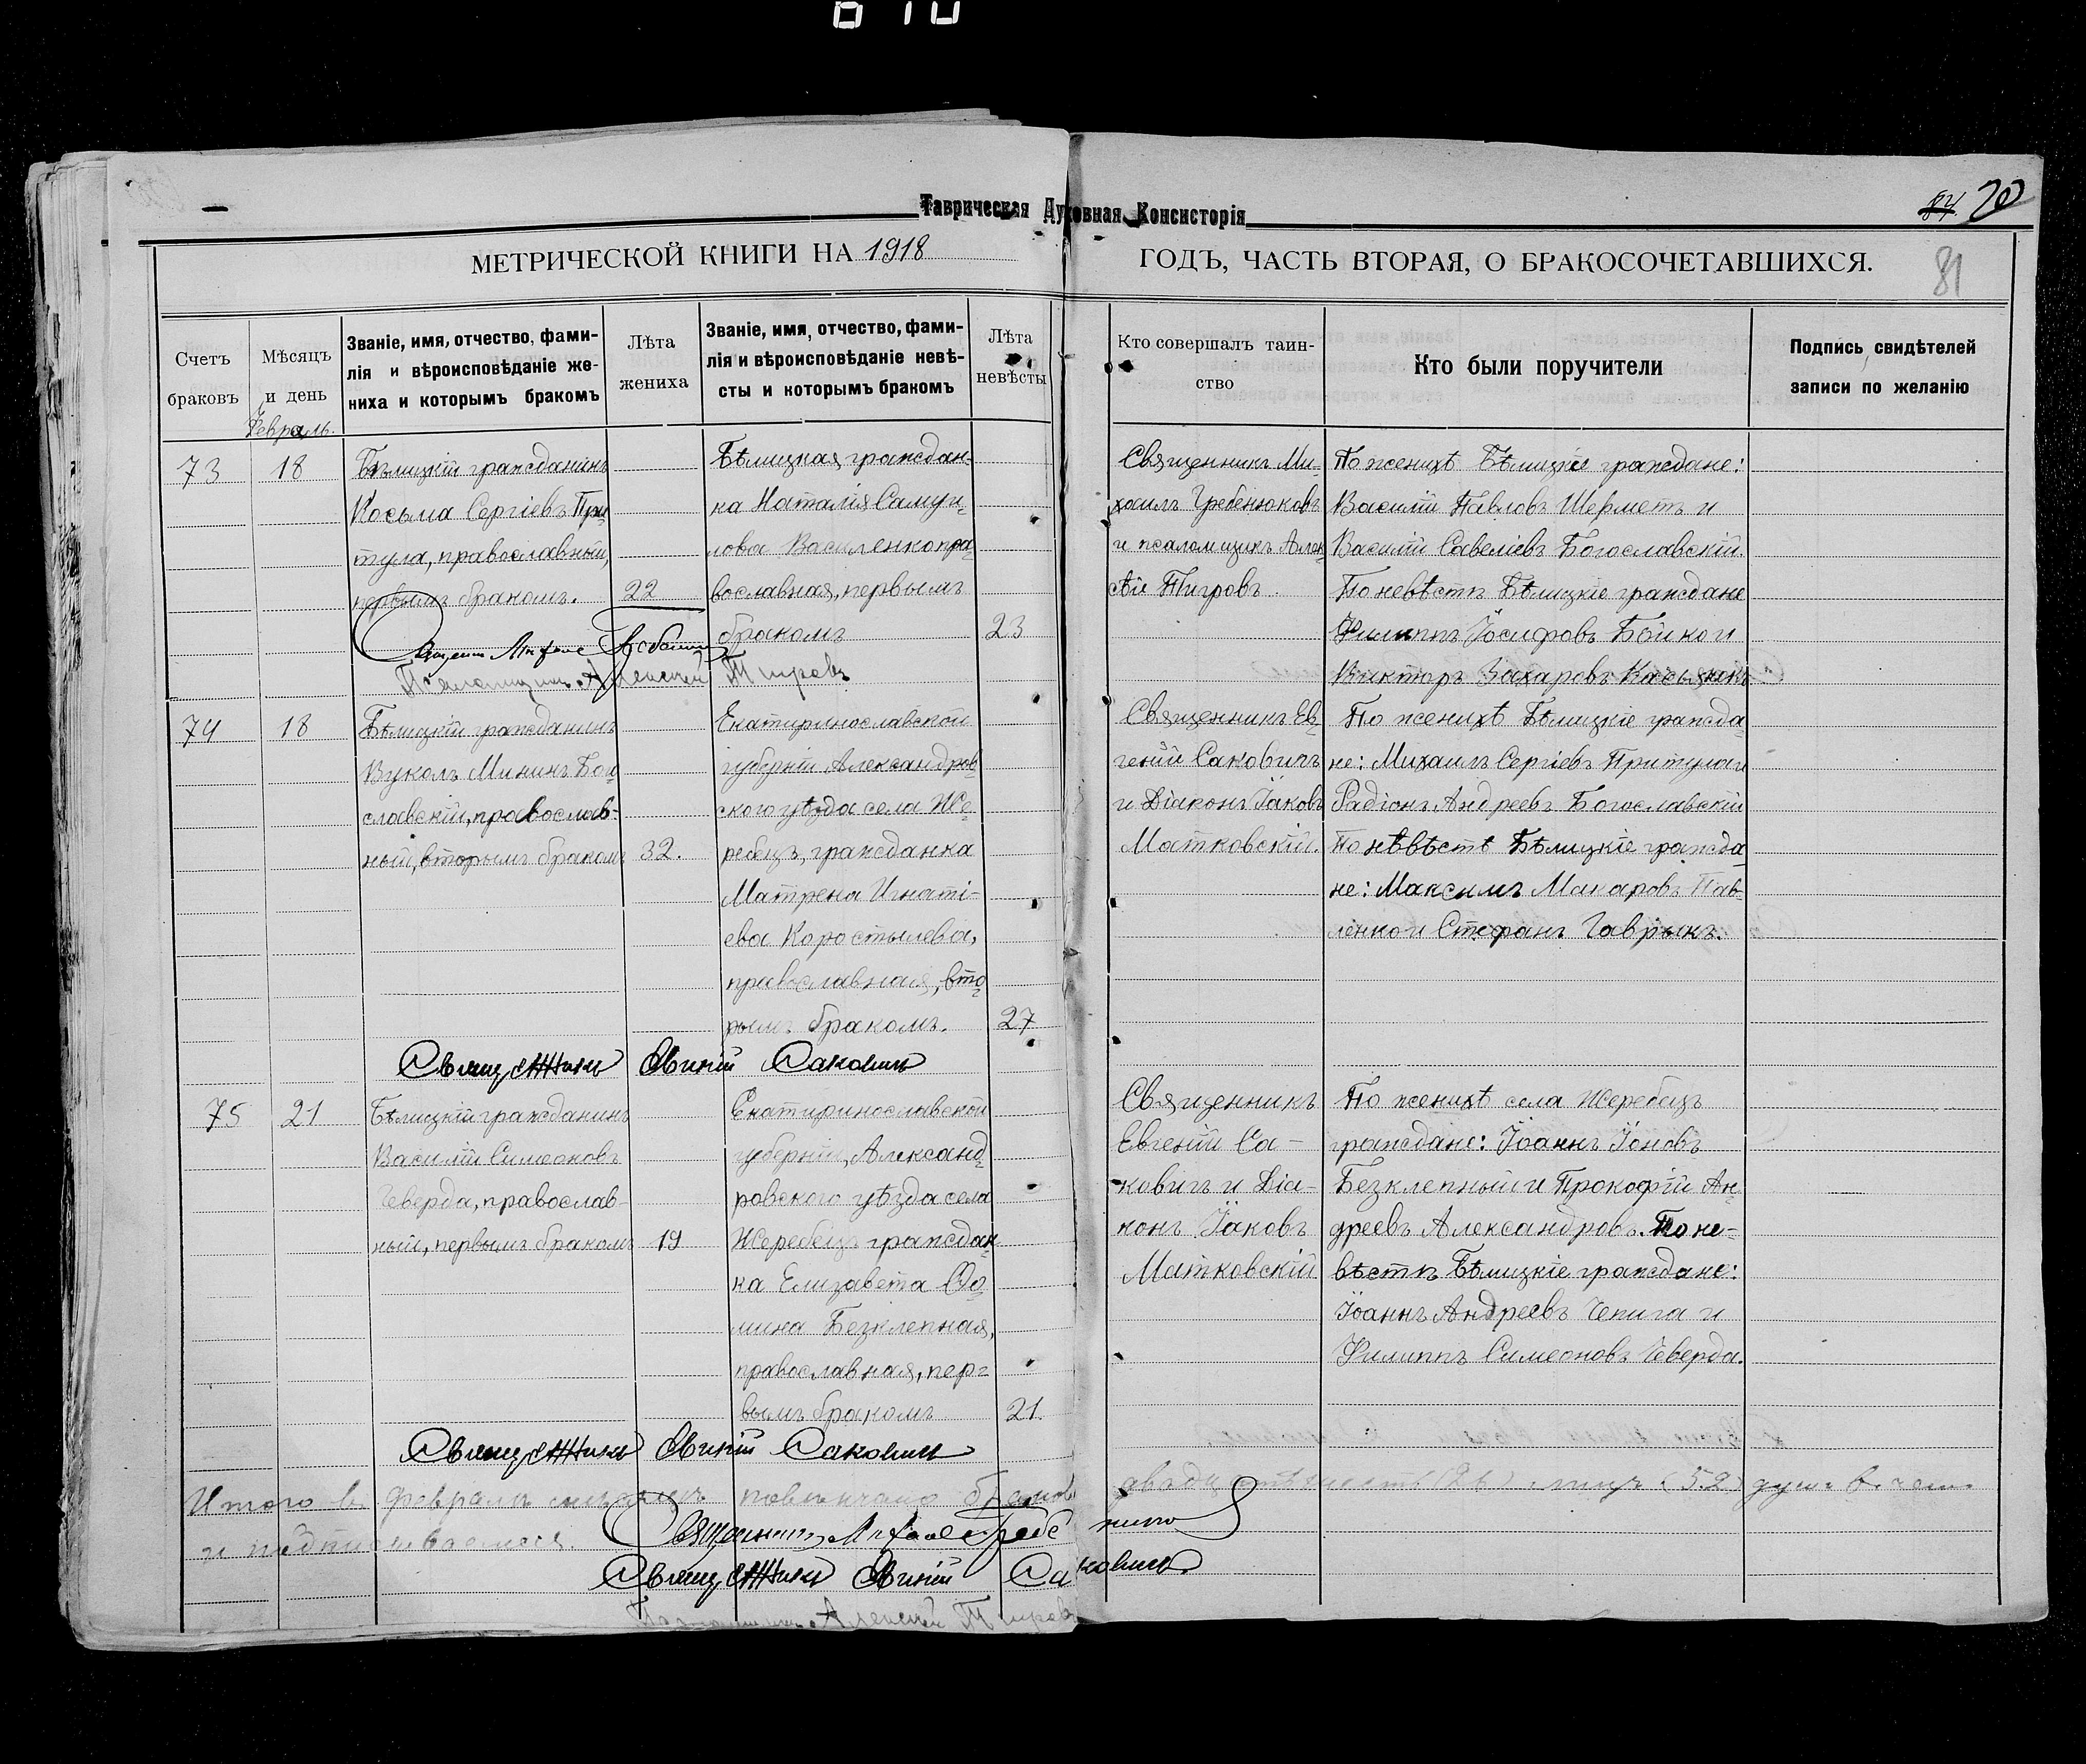 Таврическая Духовная Консисторія
84 70
81
МЕТРИЧЕСКОЙ КНИГИ НА 1918 ГОДЪ, ЧАСТЬ ВТОРАЯ, О БРАКОСОЧЕТАВШИХСЯ.
Счетъ
браковъ
Мѣсяцъ
и день
Званіе, имя, отчество, фами-
лія и вѣроисповѣданіе же-
ниха и которымъ бракомъ
Лѣта
жениха
Званіе, имя, отчество, фами-
лія и вѣроисповѣданіе невѣ-
сты и которымъ бракомъ
Лѣта
невѣсты
Кто совершалъ таин-
ство
Кто были поручители
Подпись свидѣтелей
записи по желанію
Февраль.
73
18
Бѣлицкій гражданинъ
Косьма Сергіевъ При-
тула, православный,
первымъ бракомъ.
22
Бѣлицкая граждан-
ка Наталія Самуи-
лова Василенко пра-
вославная, первымъ
бракомъ
23
Священникъ Ми-
хаилъ Гребенюковъ
и псаломщикъ Алек-
сѣй Тигровъ.
По женихѣ Бѣлицкіе граждане:
Василій Павловъ Шерметъ и
Василій Савеліевъ Богославскій.
По невѣстѣ Бѣлицкіе граждане
Филиппъ Іосифовъ Бойко и
Викторъ Захаровъ Касьянъ
Псаломщикъ Алексей Тигровъ
74
18
Бѣлицкій гражданинъ
Вуколъ Мининъ Бого-
славскій, православ-
ный, вторымъ бракомъ
32.
Екатиринославской
губерніи Александров-
ского уѣзда села Же-
ребецъ, гражданка
Матрена Игнаті-
ева Коростылева,
православная, вто-
рымъ бракомъ.
27
Священникъ Ев-
геній Саковичъ
и Діаконъ Іаковъ
Матковскій.
По женихѣ Бѣлицкіе гражда-
не: Михаилъ Сергіевъ Притула и
Радіонъ Андреевъ Богославскій
По нѣвѣстѣ Бѣлицкіе гражда
не: Максимъ Макаровъ Пав-
ленко и Стефанъ Гаврыкъ.
Священникъ Евгеній Саковичъ
75
21
Бѣлицкій гражданинъ
Василій Симеоновъ
Чеверда, православ-
ный, первымъ бракомъ
19
Екатиринославской
губерніи, Александ-
ровского уѣзда села
Жеребецъ граждан-
ка Елизавета Ѳо-
мина Безклепная,
православная, пер-
вымъ бракомъ
21.
Священникъ
Евгеній Са-
ковичъ и Діа-
конъ Іаковъ
Матковскій
По женихѣ села Жеребецъ
граждане: Іоаннъ Іоновъ
Безклепный и Прокофій Ан-
дреевъ Александровъ. По не-
вѣстѣ Бѣлицкіе граждане:
Іоаннъ Андреевъ Чепига и
Филиппъ Симеоновъ Чеверда.
Священникъ Евгеній Саковичъ
Итого въ февралѣ мѣсяцѣ повѣнчано браковъ двадцать шесть (26) лицъ (52) душъ в чемъ
и подписываемся. Священникъ Михаилъ Гребенюко
Священникъ Евгеній Саковичъ
Псаломщикъ Алексей Тигровъ